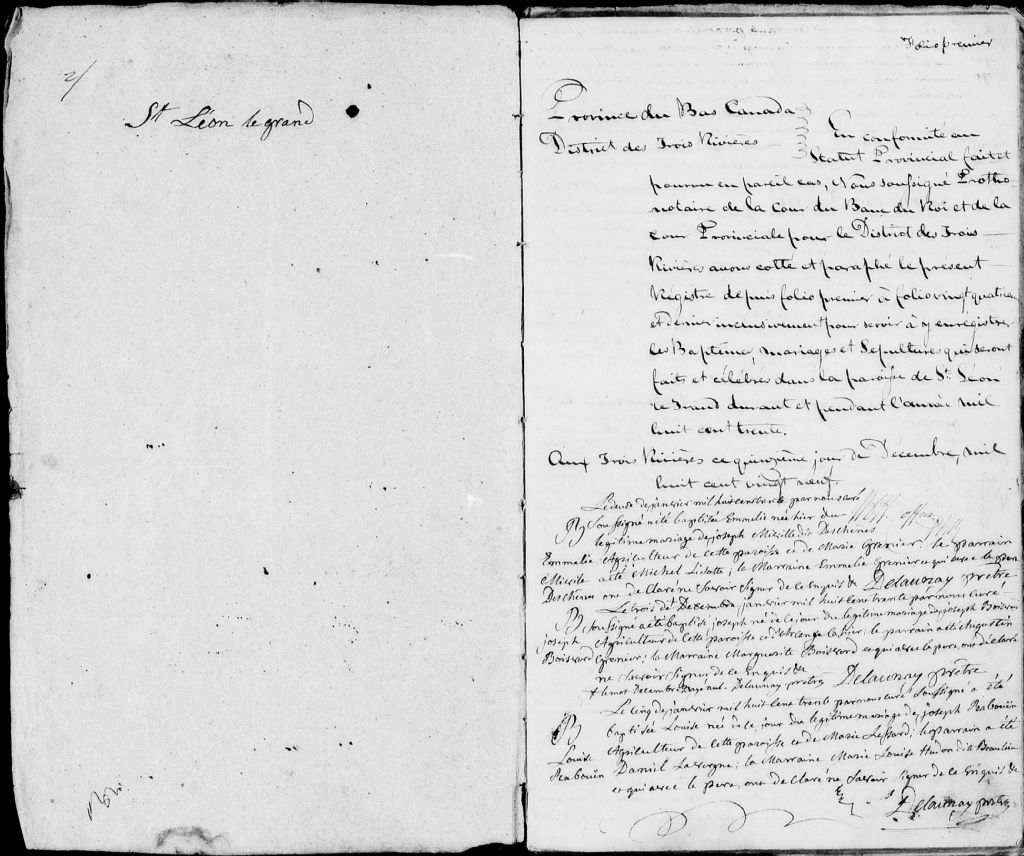 2/
St Léon le grand
Folio premier
Province du Bas Canada
District des Trois Rivières
En conformité au
Statut Provincial fait et
pourvu en pareil cas, Nous soussigné Protho-
notaire de la Cour du Banc du Roi et de la
Cour Provinciale pour le District des Trois
Rivières avons cotté et paraphé le présent
Régistre depuis folio premier à folio vingt quatrieme
et dernier inclusivement pour servir à y enregistrer
les Baptêmes, mariages et Sepultures qui seront
faits et célébrés dans la paroisse de St. Léon
le Grand durant et pendant l'année mil
huit cent trente.
Aux Trois Rivières ce quinzième jour de Décembre, mil
huit cent vingt neuf
Le deux de janvier mil huit cens trente par nous curé
B soussigné a été baptisée Emmelie née hier du
legitime mariage de joseph Miville dit Deschenes
Emmelie Agriculteur de cette paroisse et de Marie Grenier; le parrain
Miville a été Michel Lisotte; la Marraine Emmelie Grenier qui avec le pere
Deschenes ont declaré ne savoir signer de ce enquis &
Delaunay prêtre
Le trois de Decembre janvier mil huit cens trente par nous curé
B soussigné a été baptisé joseph né de ce jour du legitime mariage de joseph Boisvord
joseph Agriculteur de cette paroisse et d'Archange; le parrain a été Augustin
Boisvord Grenier; la Marraine Marguerite Boisvord et qui avec le pere, ont declaré
ne savoir signer de ce enquis &
+ le mot Decembre Delaunay prêtre Delaunay prêtre
Le cinq de janvier mil huit cens trente par nous curé soussigné a été
B baptisée Louise née de ce jour du legitime mariage de joseph Rabouin
Louise Agriculteur de cette paroisse et de Marie Lessard; le parrain a été
Rabouin Daniel Lavergne; la Marraine Marie Louise Hudon dit Beaulieu
et qui avec le pere, ont declaré ne savoir signer de ce enquis &
Delaunay prêtre